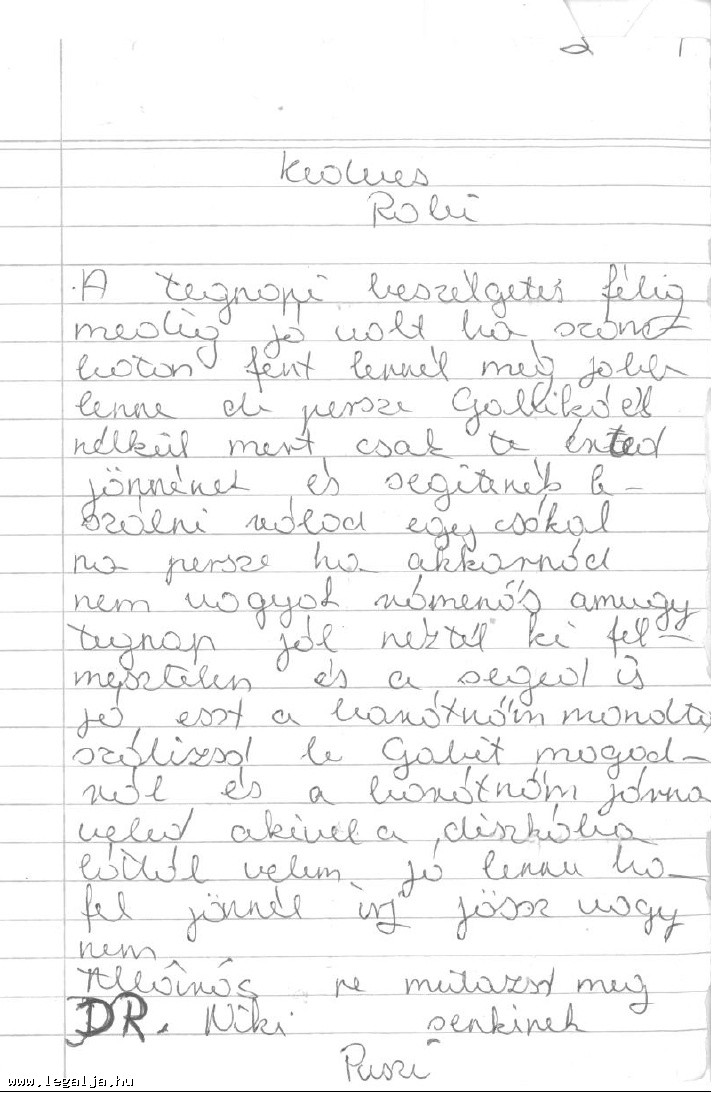 Kedves
Robi
A tegnapi beszélgetés félig
meddig jó volt ha szomba
baton fent lennél még jobb
lenne de persze Gabbikáék
nélkül mert csak te érted
jönnének és segitenék le-
szálni rólad egy csókal
na persze ha akkarnád
nem vagyok rámenős amugy
tegnap jól néztél ki fél-
mesztelen és a seged is
jó eszt a barátnőm mondta
szálizsd le Gabit magad-
ról és a barátnőm járna
veled akivel a diszkóba
láttál velem jó lenne ha
fel jönnél irj jössz vagy
nem
ne mutazsd meg
DR. Niki senkinek
Puszi
www.legalja.hu